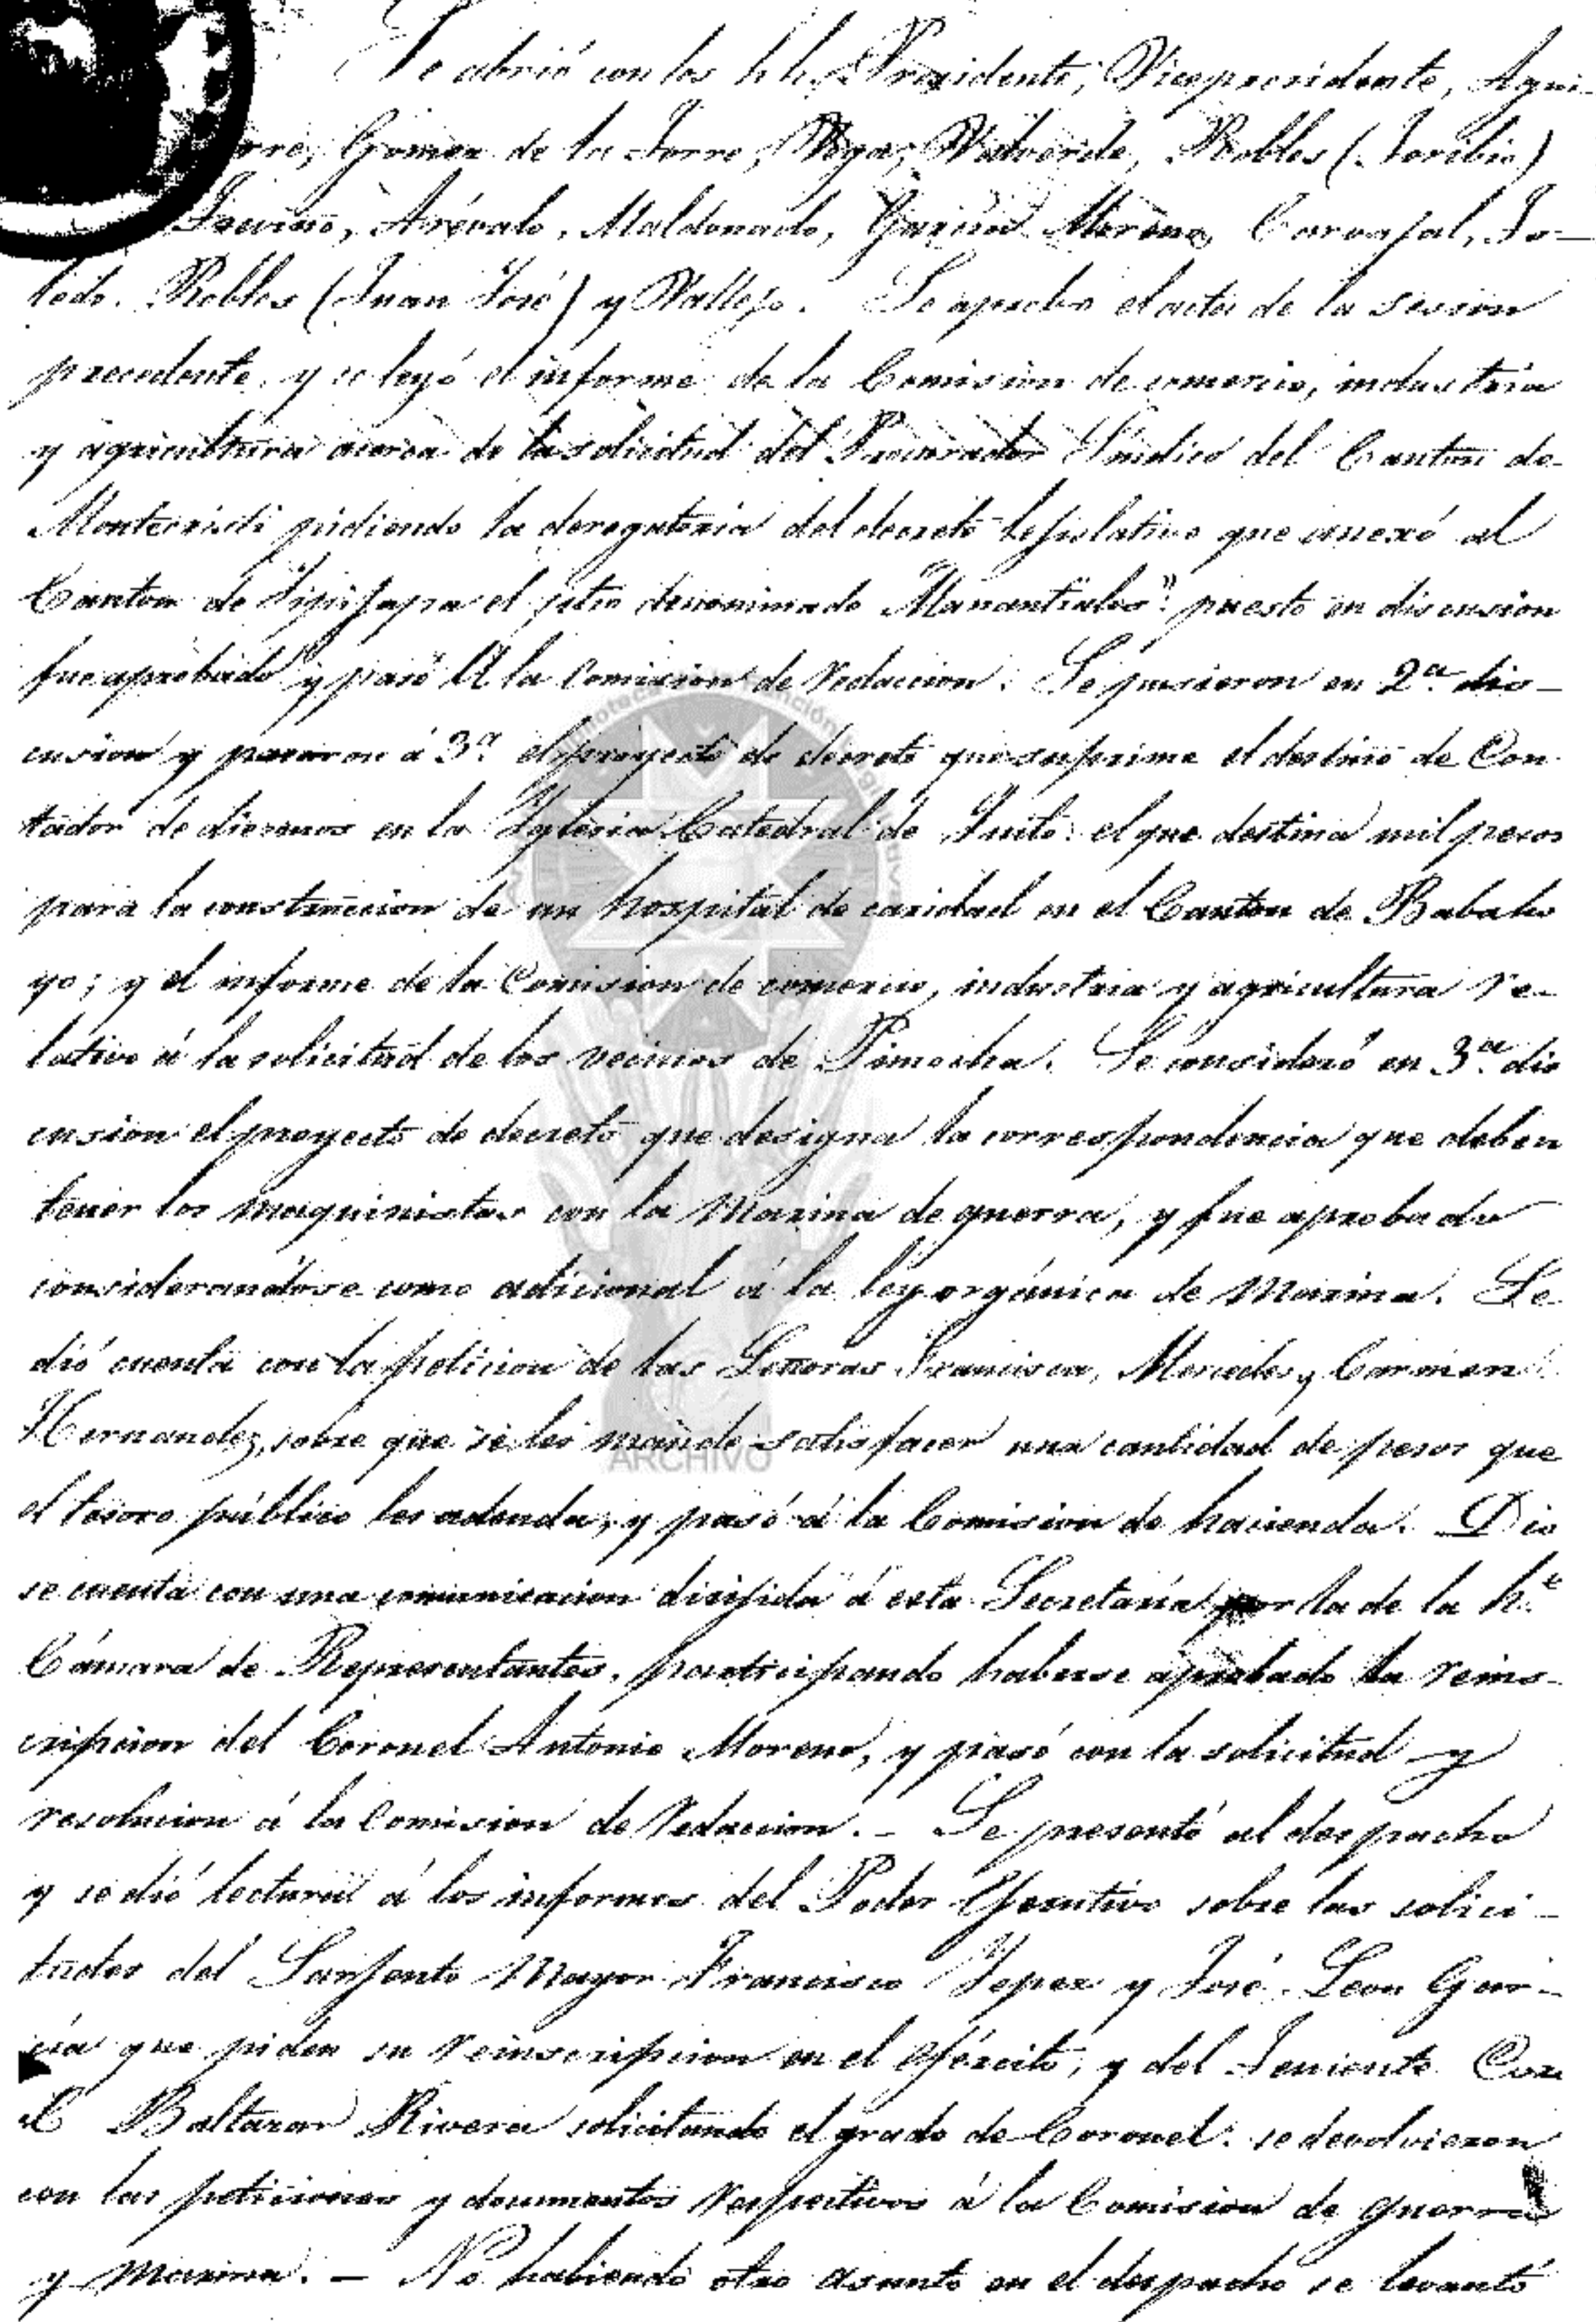 Se abrió con los hh. Presidente, Vicepresidente, Agui-
rre, Gomez de la Torre, Vega, Valverde, Robles (Toribio)
Treviño, Arévalo, Maldonado, García Moreno, Carvajal, To-
ledo, Robles (Juan José) y Vallejo. Se aprobo el acta de la sesion
precedente, y se leyó el informe de la Comision de comercio, industria
y agricultura acerca de la solicitud del Procurador Síndico del Canton de
Montecristi pidiendo la derogatoria del decreto lejislativo que anexó al
Canton de Jipijapa el sitio denominado "Manantiales": puesto en discusion
fue aprobado y pasó á la Comision de redaccion. Se pusieron en 2ª dis-
cusion y pasaron á 3ª el proyecto de decreto que suprime el destino de Con
tador de diezmos en la Yglesia Catedral de Quito: el que destina mil pesos
para la construccion de un hospital de caridad en el Canton de Babaho
yo; y el informe de la Comision de comercio, industria y agricultura re-
lativo á la solicitud de los vecinos de Pimocha. Se consideró en 3ª dis
cusion el proyecto de decreto que designa la correspondencia que deben
tener los maquinistas con la Marina de guerra, y fue aprobado
considerandose como adicional á la ley orgánica de Marina. Se
dió cuenta con la peticion de las Señoras Francisca, Mercedes y Carmen
Hernandez, sobre que se les mande satisfacer una cantidad de pesos que
el tesoro público les adeuda, y pasó á la Comision de hacienda. Dio
se cuenta con una comunicacion dirijida á esta Secretaría por la de la h.e
Cámara de Representantes, participando haberse aprobado la reins-
cripcion del Coronel Antonio Moreno, y pasó con la solicitud y
resolucion á la Comision de redaccion. - Se presentó al despacho
y se dió lectura á los informes del Poder Ejecutivo sobre las solici-
tudes del Sarjento Mayor Francisco Yepez y José Leon Gar-
cía que piden su reinscripcion en el ejército, y del Teniente Coro
l Baltazar Rivera solicitando el grado de Coronel: se devolvieron
con las peticiones y documentos respectivos á la Comision de guerra
y marina. - No habiendo otro asunto en el despacho se levantó
ARCHIVO